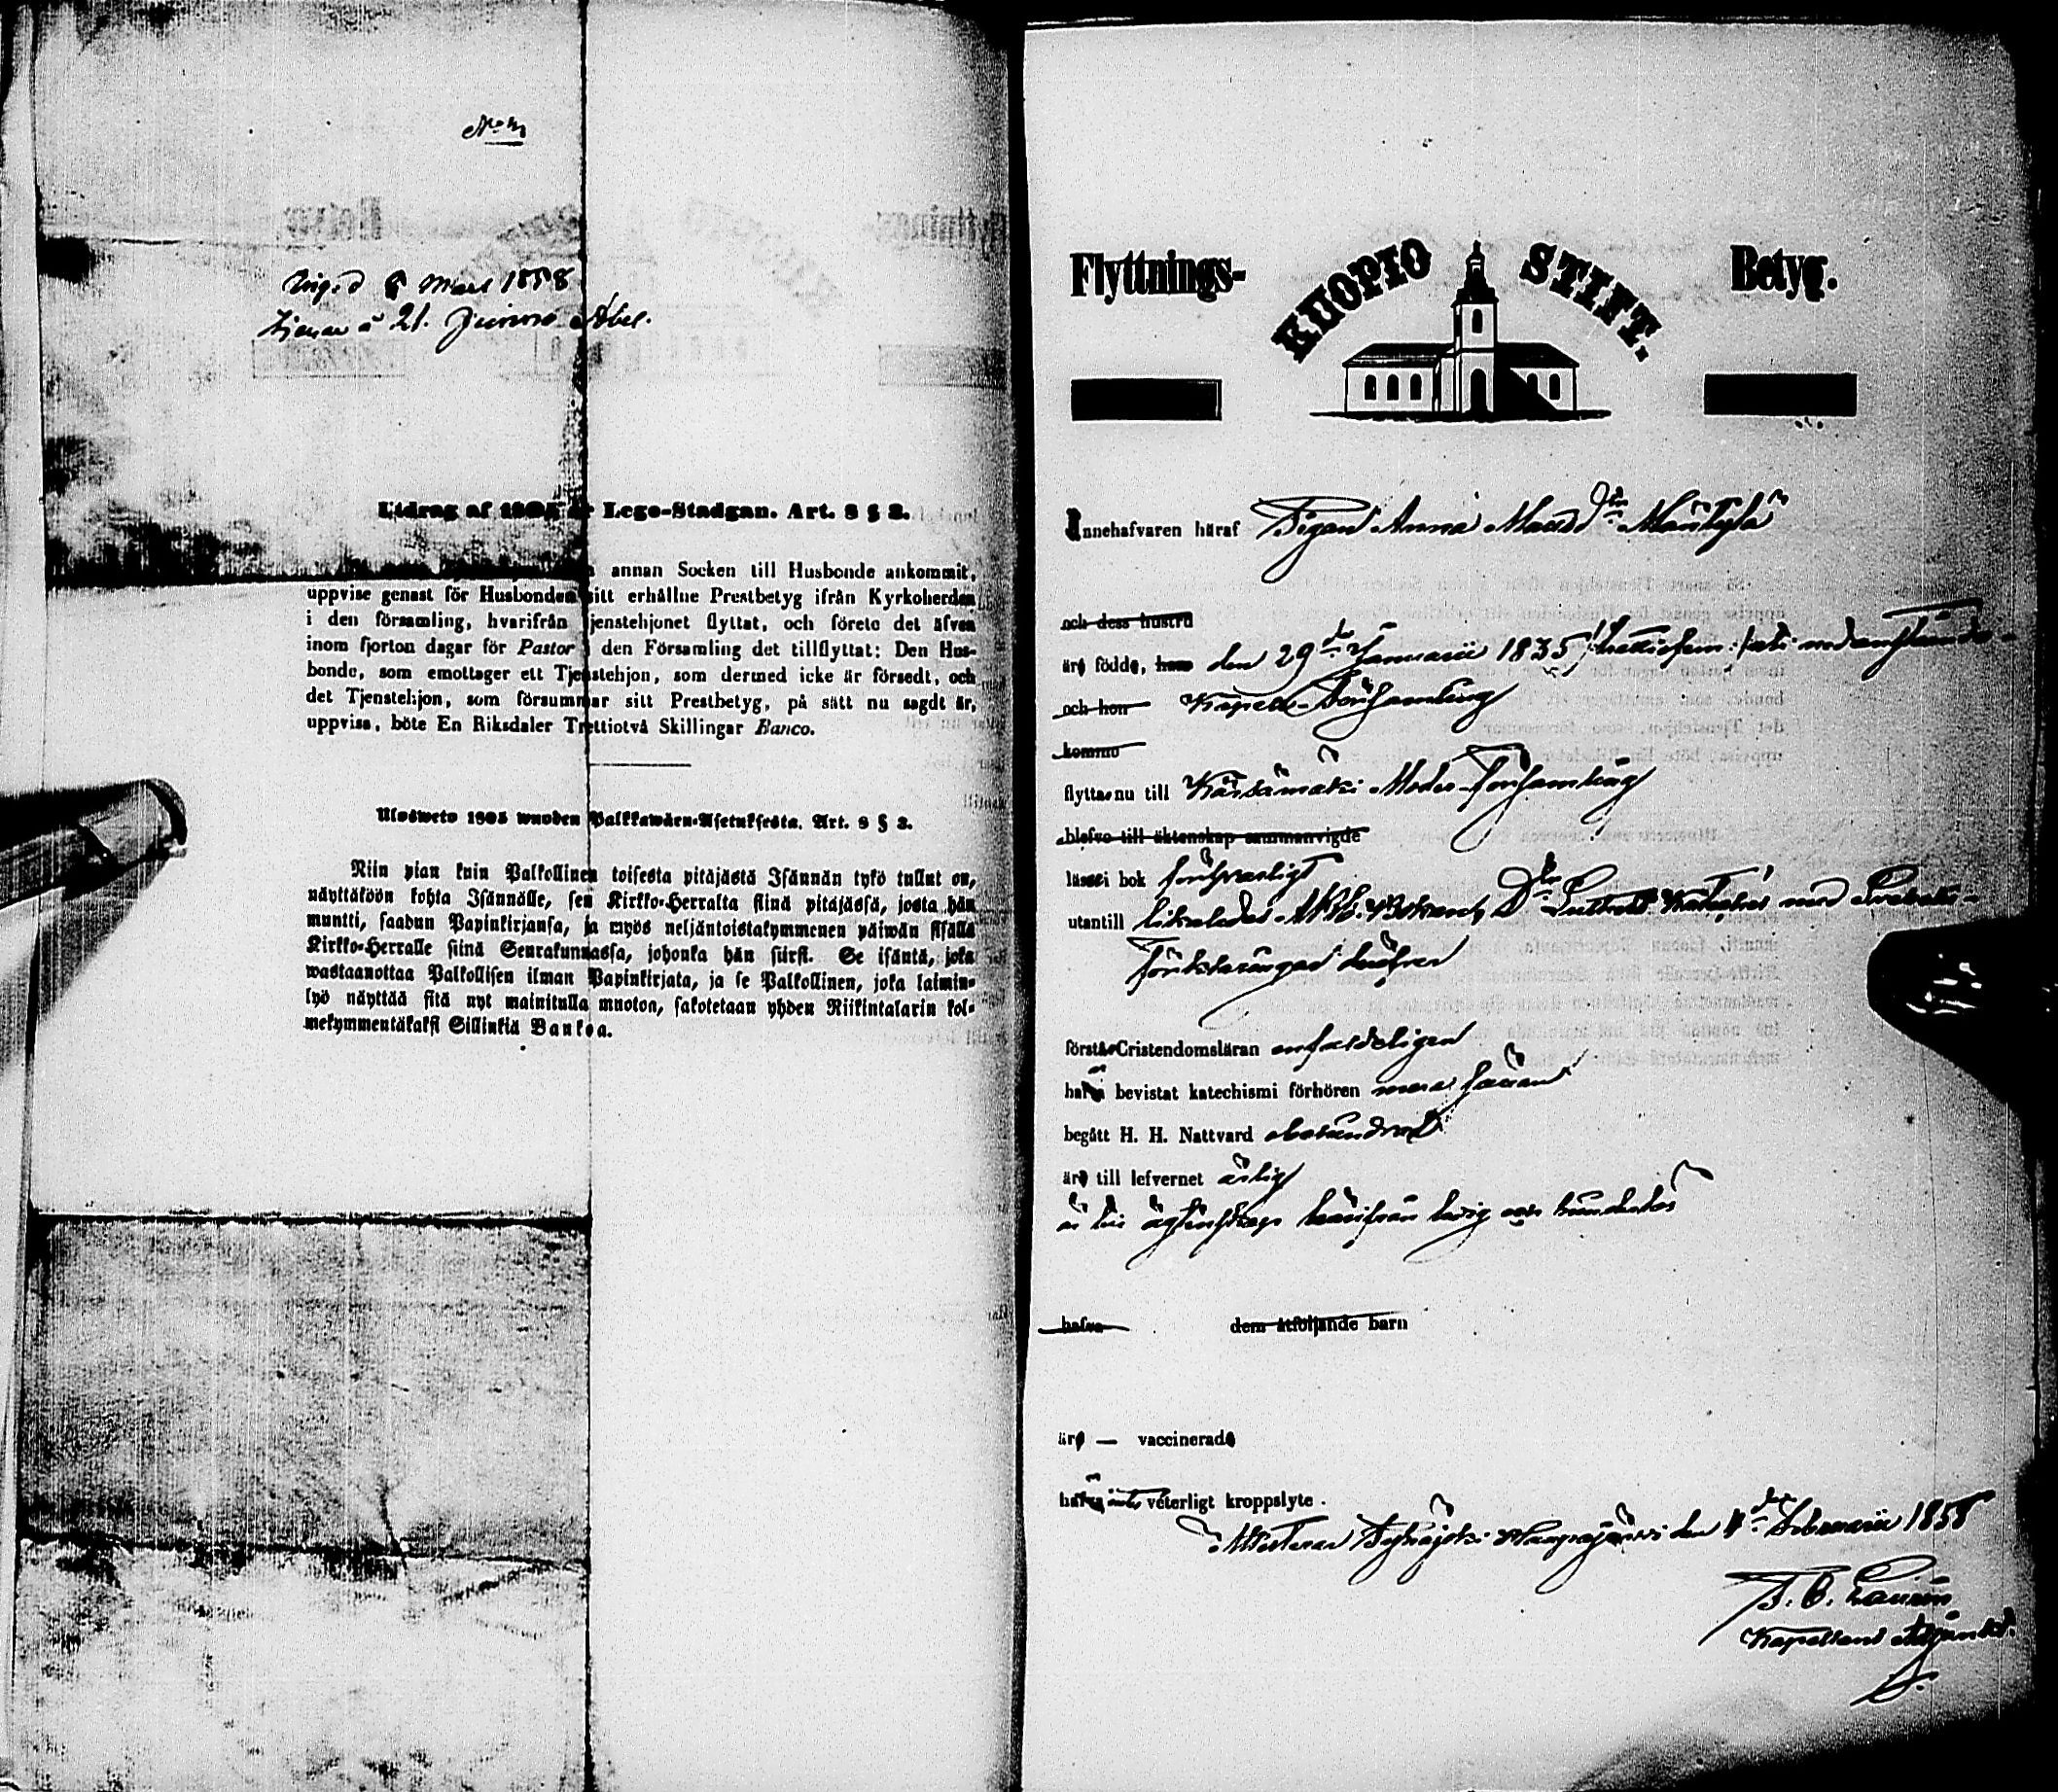 Uidrag af 1805 år Lego-Stadgan. Art. 8 § 2.
annan Socken till Husbonde ankommit,
uppvise genast för Husbonden sitt erhållne Prestbetyg ifrån Kyrkoherden
i den församling, hvarifrån tjenstehjonet flyttat, och förete det äfven
inom fjorton dagar för Pastor i den Församling det tillflyttat: Den Hus-
bonde, som emottager ett Tjenstehjon, som dermed icke är försedt, och
det Tjenstehjon, som försummar sitt Prestbetyg, på sätt nu sagdt är,
uppvisa, böte En Riksdaler Trettiotvå Skillingar Banco.
Ulosweto 1805 wuoden Palkkawären-Asetuksesta. Art. 8 § 2.
Niin pian kuin Palkollinen toisesta pitäjästä Isännän tykö tullut on,
näyttäköön kohta Isännälle, sen Kirkko-Herralta siinä pitäjässä, josta hän
muutti, saadun Papinkirjansa, ja myös neljäntoistakymmenen päiwän sisällä
Kirkko-Herralle siinä Seurakunnassa, johonka hän siirsi. Se isäntä, joka
wastaanottaa Palkollisen ilman Papinkirjata, ja se Palkollinen, joka laimin-
lyö näyttää sitä nyt mainitulla muoton, sakotetaan yhden Riikintalarin kol-
mekymmentäkaksi Sillinkiä Bankoa.
Flyttnings- KUOPIO STIFT. Betyg.
Innehafvaren häraf Pigan Anna Mantylä
och dess hustru
äro födde, han den 29de Januarii 1835
och hon Kapells-Församling
komma
flytta nu till Kärsämäki Moder-Församling
blefvo till äktenskap sammanvigde
läsa i bok försvarligt
utantill
Förklaringar
förstå Cristendomsläran enfaldeligen
hafva bevistat katechismi förhören
begått H. H. Nattvard oberändrad
äro till lefvernet ärlig
är till ägtenskap härifrån ledig och hinderlös
hafva dem åtföljande barn
äro — vaccinerade
hafva intet veterligt kroppslyte.
Haapajärvi den Februarii 1858
Kapellans Adjunkt.